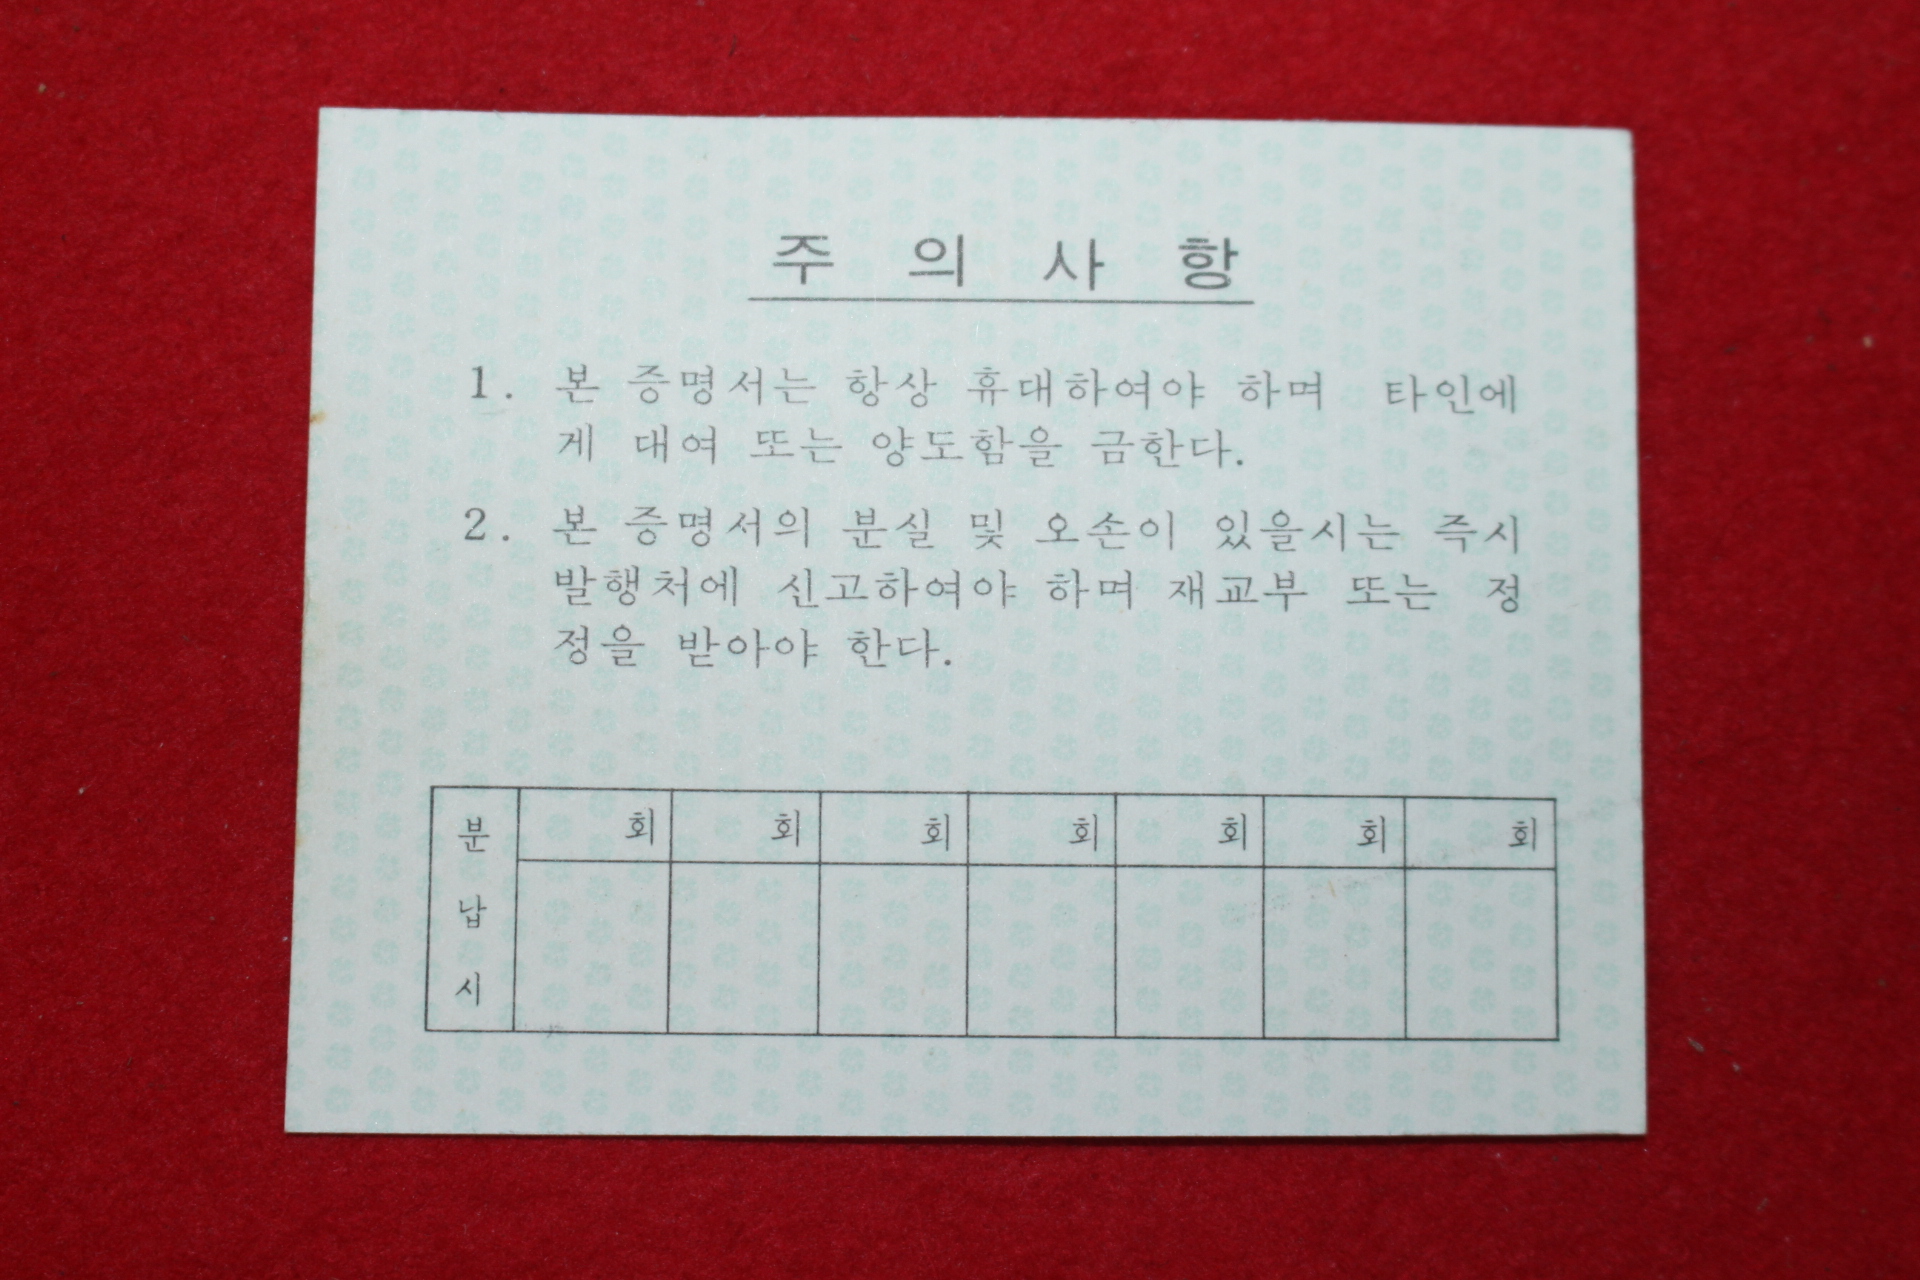 주 의 사 항
1. 본 증명서는 항상 휴대하여야 하며 타인에
게 대여 또는 양도함을 금한다.
2. 본 증명서의 분실 및 오손이 있을시는 즉시
발행처에 신고하여야 하며 재교부 또는 정
정을 받아야 한다.
분 회 회 회 회 회 회 회
답
시